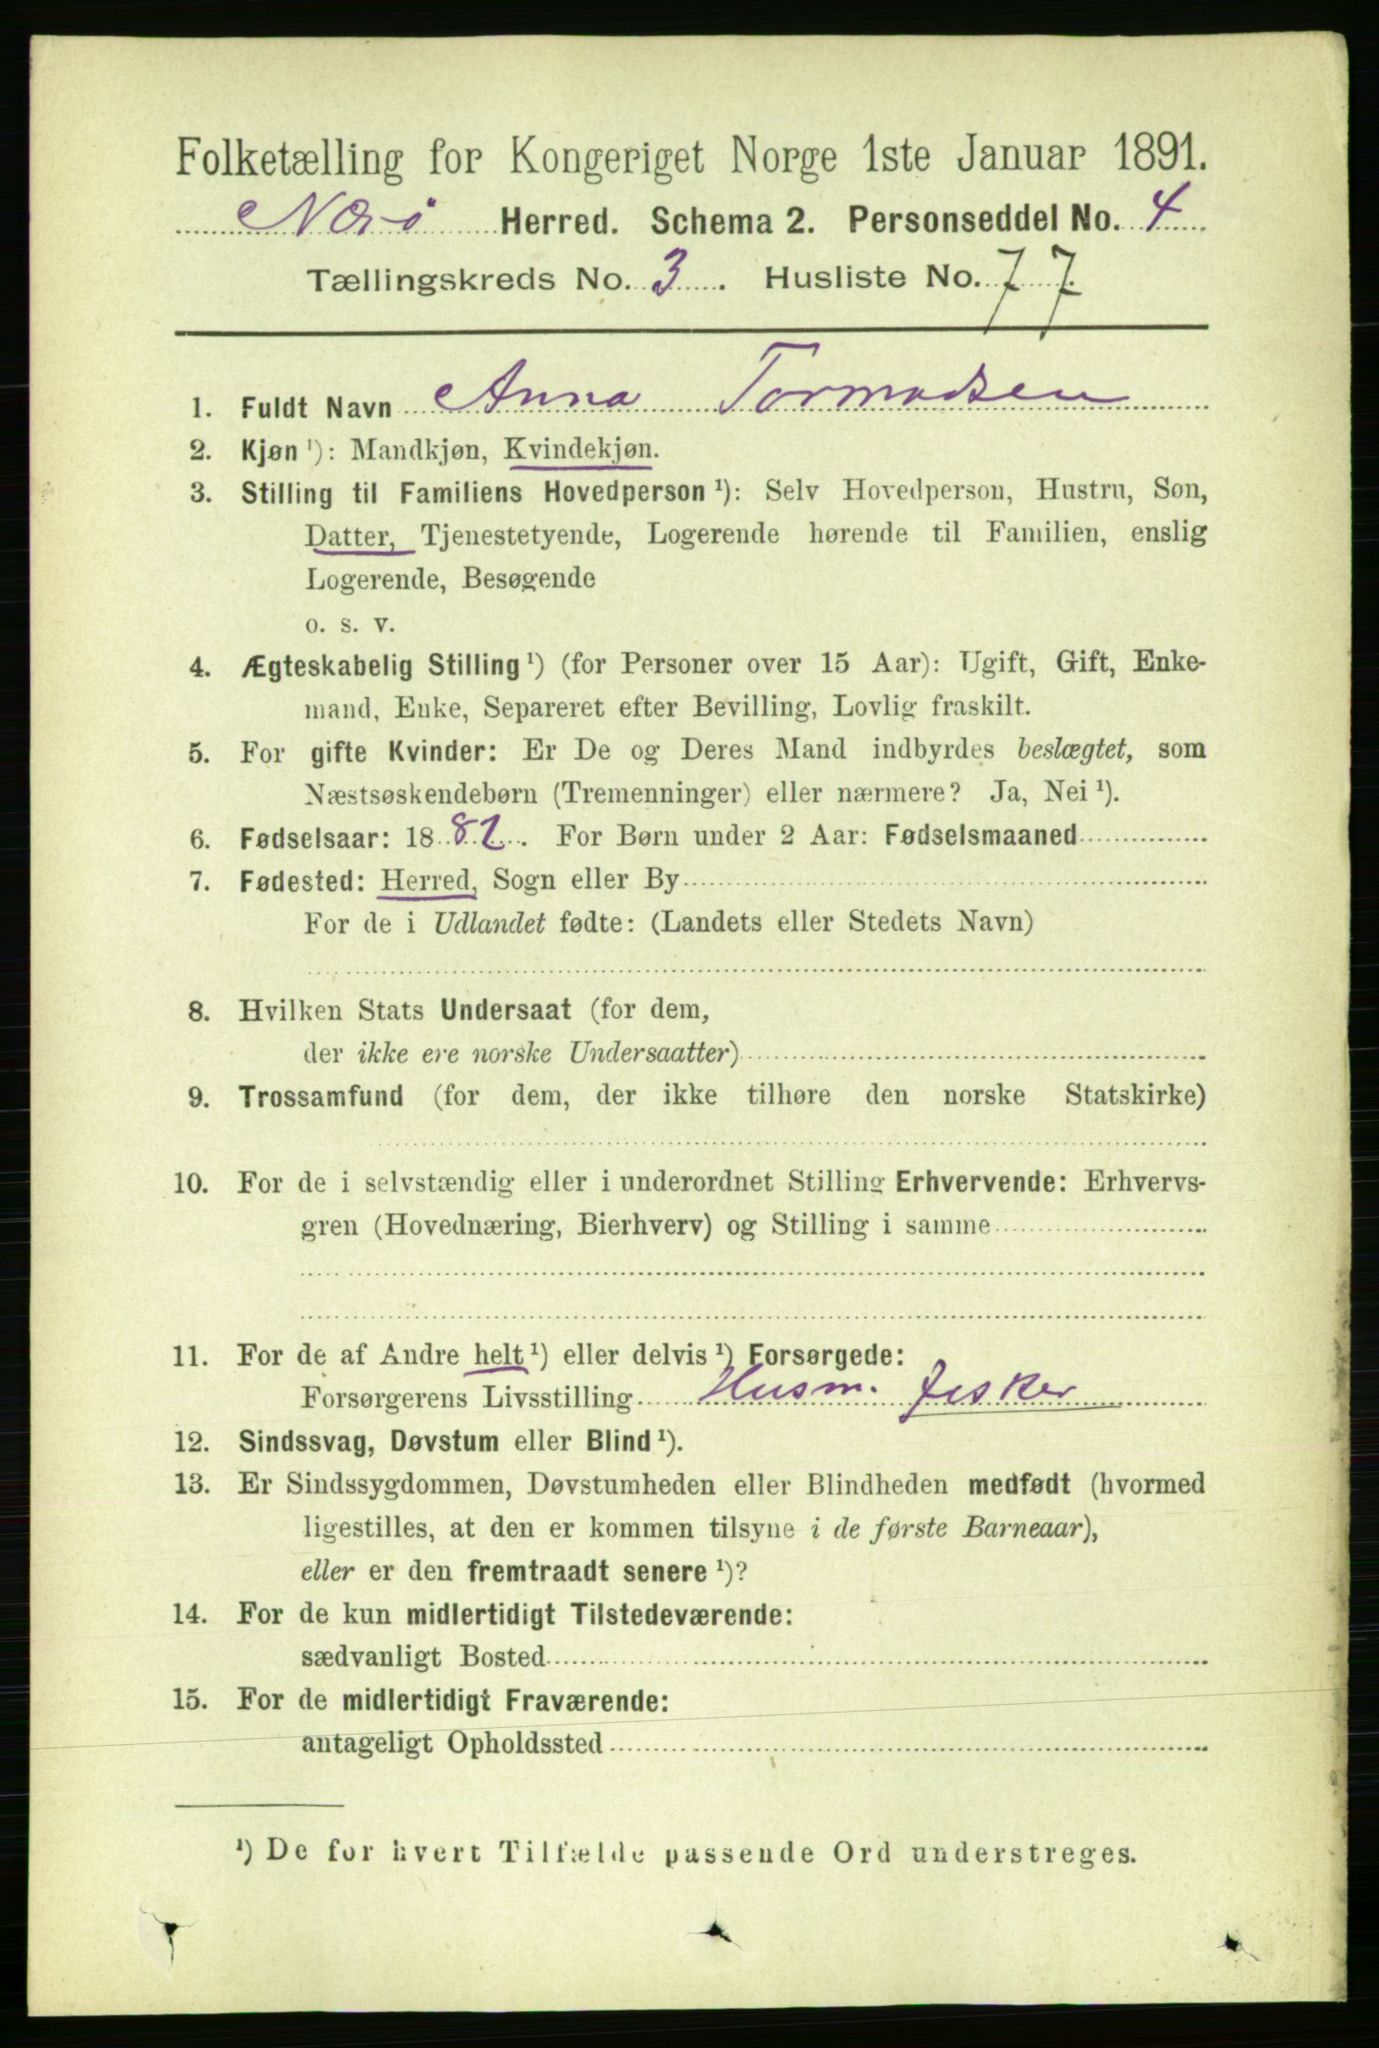 Folketælling for Kongeriget Norge 1ste Januar 1891.
Nærø Herred. Schema 2. Personseddel No. 4
Tællingskreds No. 3. Husliste No. 77
1. Fuldt Navn Anna Tormodsen
2. Kjøn ¹): Mandkjøn, Kvindekjøn.
3. Stilling til Familiens Hovedperson ¹): Selv Hovedperson, Hustru, Søn,
Datter, Tjenestetyende, Logerende hørende til Familien, enslig
Logerende, Besøgende
o. s. v.
4. Ægteskabelig Stilling ¹) (for Personer over 15 Aar): Ugift, Gift, Enke-
mand, Enke, Separeret efter Bevilling, Lovlig fraskilt.
5. For gifte Kvinder: Er De og Deres Mand indbyrdes beslægtet, som
Næstsøskendebørn (Tremenninger) eller nærmere? Ja, Nei ¹).
6. Fødselsaar: 1882. For Børn under 2 Aar: Fødselsmaaned
7. Fødested: Herred, Sogn eller By
For de i Udlandet fødte: (Landets eller Stedets Navn)
8. Hvilken Stats Undersaat (for dem,
der ikke ere norske Undersaatter)
9. Trossamfund (for dem, der ikke tilhøre den norske Statskirke)
10. For de i selvstændig eller i underordnet Stilling Erhvervende: Erhvervs-
gren (Hovednæring, Bierhverv) og Stilling i samme
11. For de af Andre helt ¹) eller delvis ¹) Forsørgede:
Forsørgerens Livsstilling Husm. fisker
12. Sindssvag, Døvstum eller Blind ¹).
13. Er Sindssygdommen, Døvstumheden eller Blindheden medfødt (hvormed
ligestilles, at den er kommen tilsyne i de første Barneaar),
eller er den fremtraadt senere ¹)?
14. For de kun midlertidigt Tilstedeværende:
sædvanligt Bosted
15. For de midlertidigt Fraværende:
antageligt Opholdssted
¹) De for hvert Tilfælde passende Ord understreges.